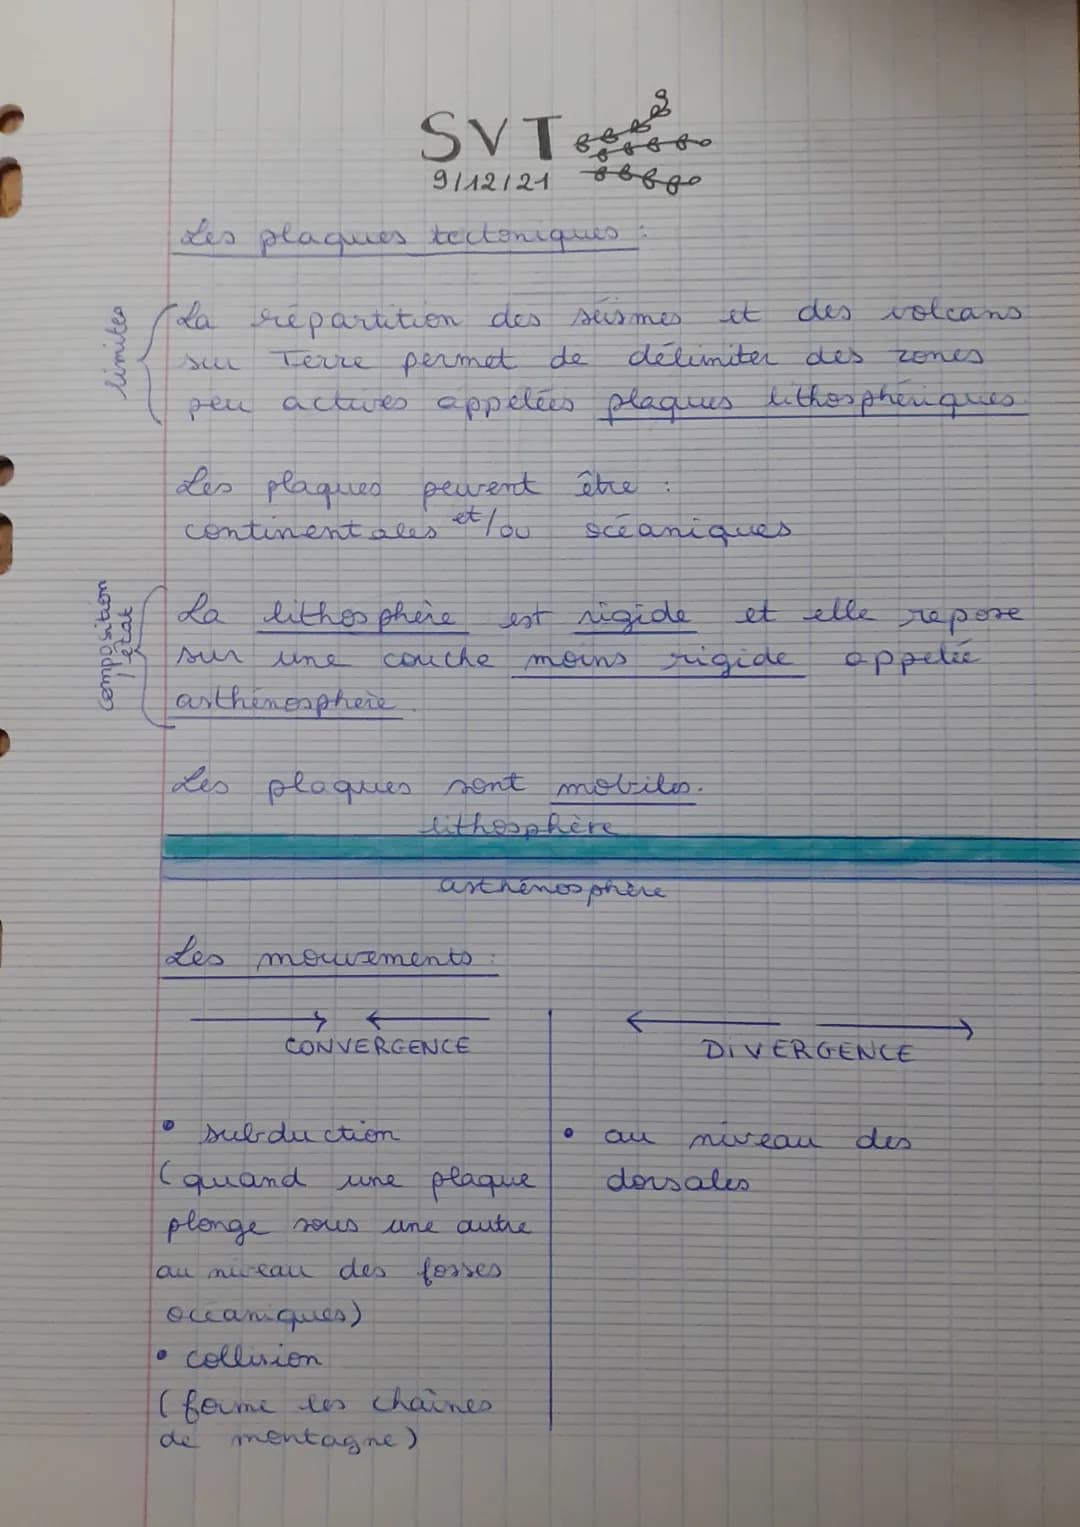 SVT
9/12/21
Les plaques tectoniques :
limites
La répartition des séismes et des volcans
sur Terre permet de délimiter des zones
peu actives appelées plaques lithosphériques
Les plaques peuvent être :
continentales et/ou océaniques
composition
/ état
La lithosphère est rigide et elle repose
sur une couche moins rigide appelée
asthénosphère.
Les plaques sont mobiles.
lithosphère
asthénosphère
Les mouvements :
CONVERGENCE
• subduction
(quand une plaque
plonge sous une autre
au niveau des fosses
océaniques)
• collision
(forme les chaînes
de montagne)
DIVERGENCE
• au niveau des
dorsales